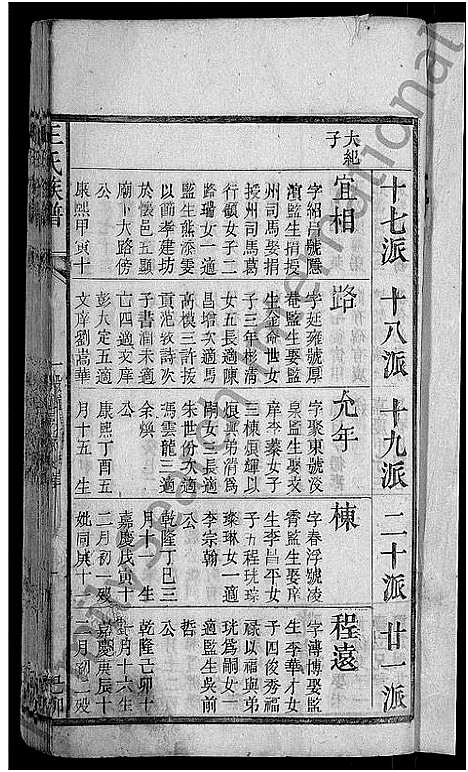 十七派 十八派 十九派 二十派 廿一派
大紀子
宜相
字紹昌號隱
濱監生捐授
州司馬娶捐
授州司馬葛
行碩女子二
路瑞女一適
監生熊添雯
以節孝建坊
於懷邑五顯
廟下大路傍
公
康熙甲寅十
路
字延雍號厚
菴監生娶監
生金命世女
子三年彬清
女五長適陳
昌增次適馬
高機三許拔
貢范牧詩次
子書澗未適
亡四適文庠
彭大定五適
文庠劉嵩華
允年
字聚東號淡
泉監生娶文
庠李蓁女子
三棟煩輝以
煩興弟清為
嗣女三長適
朱世份次適
馮雲龍三適
余煥
公
康熙丁酉五
月十五 生
棟
字春浮號凌
霄監生娶庠
生李昌平女
子五程珖琮
璨琳女一適
李宗翰
公
乾隆丁巳三
月十一 生
嘉慶戊寅十
二月初二歿
妣同庚十一
程遠
字溥博娶監
生李華才女
子四俊秀福
祿以福與弟
珖為嗣女一
適監生吳前
哲
公
乾隆己卯十
一月十六生
嘉慶庚辰十
二月初一歿
王氏族譜